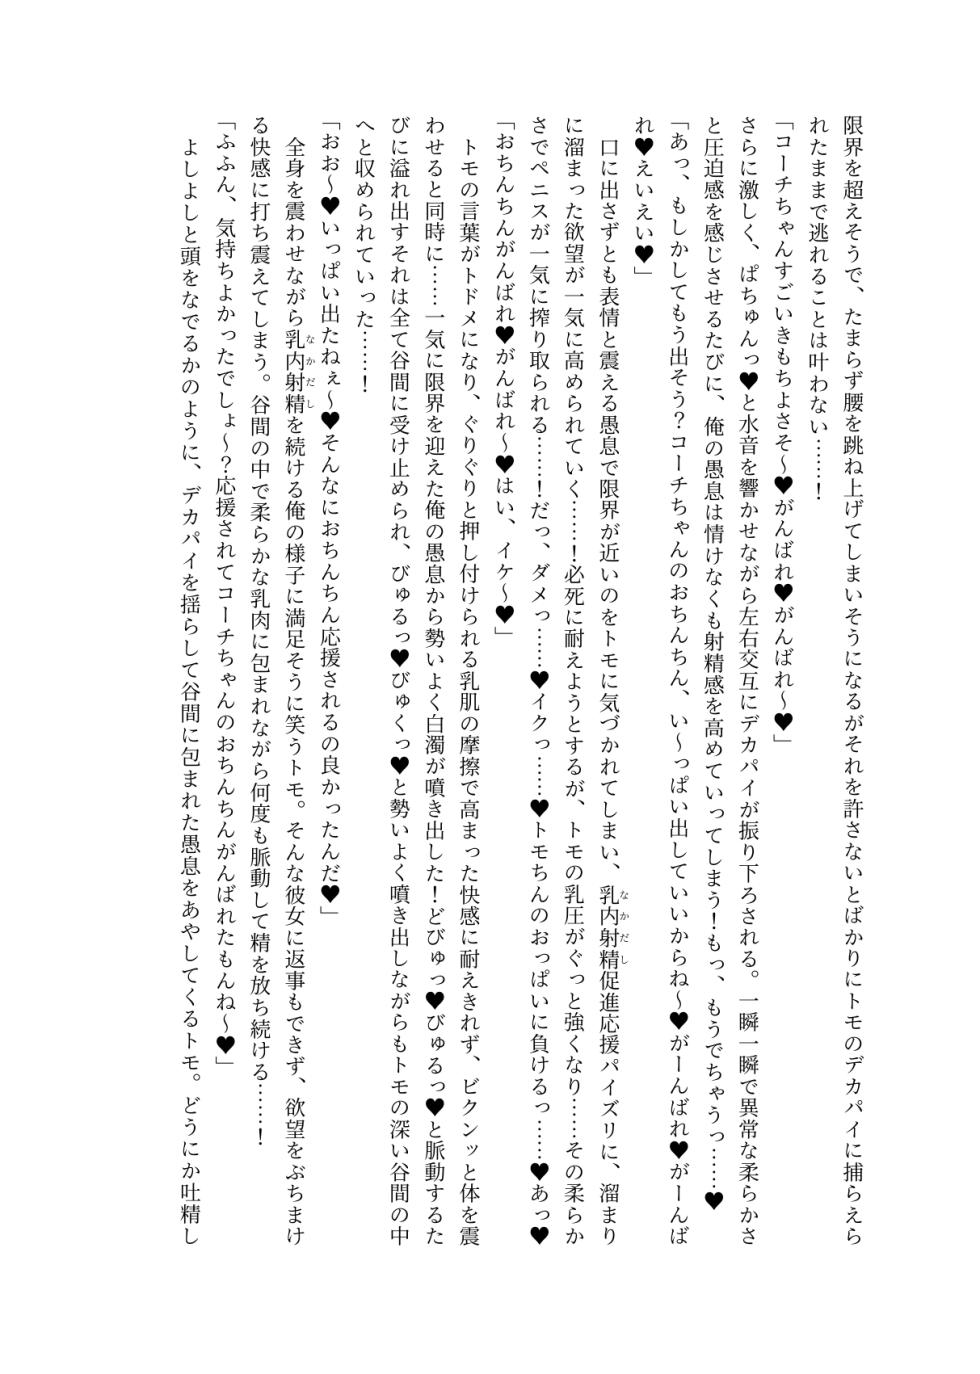 限界を超えそうで、たまらず腰を跳ね上げてしまいそうになるがそれを許さないとばかりにトモのデカパイに捕らえら
れたままで逃れることは叶わない……！
「コーチちゃんすごいきもちよさそ～♥がんばれ♥がんばれ～♥」
さらに激しく、ぱちゅんっ♥と水音を響かせながら左右交互にデカパイが振り下ろされる。一瞬一瞬で異常な柔らかさ
と圧迫感を感じさせるたびに、俺の愚息は情けなくも射精感を高めていってしまう！もっ、もうでちゃうっ……♥
「あっ、もしかしてもう出そう？コーチちゃんのおちんちん、い～っぱい出していいからね～♥がーんばれ♥がーんば
れ♥えいえい♥」
口に出さずとも表情と震える愚息で限界が近いのをトモに気づかれてしまい、乳内射精なかだし促進応援パイズリに、溜まり
に溜まった欲望が一気に高められていく……！必死に耐えようとするが、トモの乳圧がぐっと強くなり……その柔らか
さでペニスが一気に搾り取られる……！だっ、ダメっ……♥イクっ……♥トモちんのおっぱいに負けるっ……♥あっ♥
「おちんちんがんばれ♥がんばれ～♥はい、イケ～♥」
トモの言葉がトドメになり、ぐりぐりと押し付けられる乳肌の摩擦で高まった快感に耐えきれず、ビクンッと体を震
わせると同時に……一気に限界を迎えた俺の愚息から勢いよく白濁が噴き出した！どびゅっ♥びゅるっ♥と脈動するた
びに溢れ出すそれは全て谷間に受け止められ、びゅるっ♥びゅくっ♥と勢いよく噴き出しながらもトモの深い谷間の中
へと収められていった……！
「おお～♥いっぱい出たねぇ～♥そんなにおちんちん応援されるの良かったんだ♥」
全身を震わせながら乳内射精なかだしを続ける俺の様子に満足そうに笑うトモ。そんな彼女に返事もできず、欲望をぶちまけ
る快感に打ち震えてしまう。谷間の中で柔らかな乳肉に包まれながら何度も脈動して精を放ち続ける……！
「ふふん、気持ちよかったでしょ～？応援されてコーチちゃんのおちんちんがんばれたもんね～♥」
よしよしと頭をなでるかのように、デカパイを揺らして谷間に包まれた愚息をあやしてくるトモ。どうにか吐精し